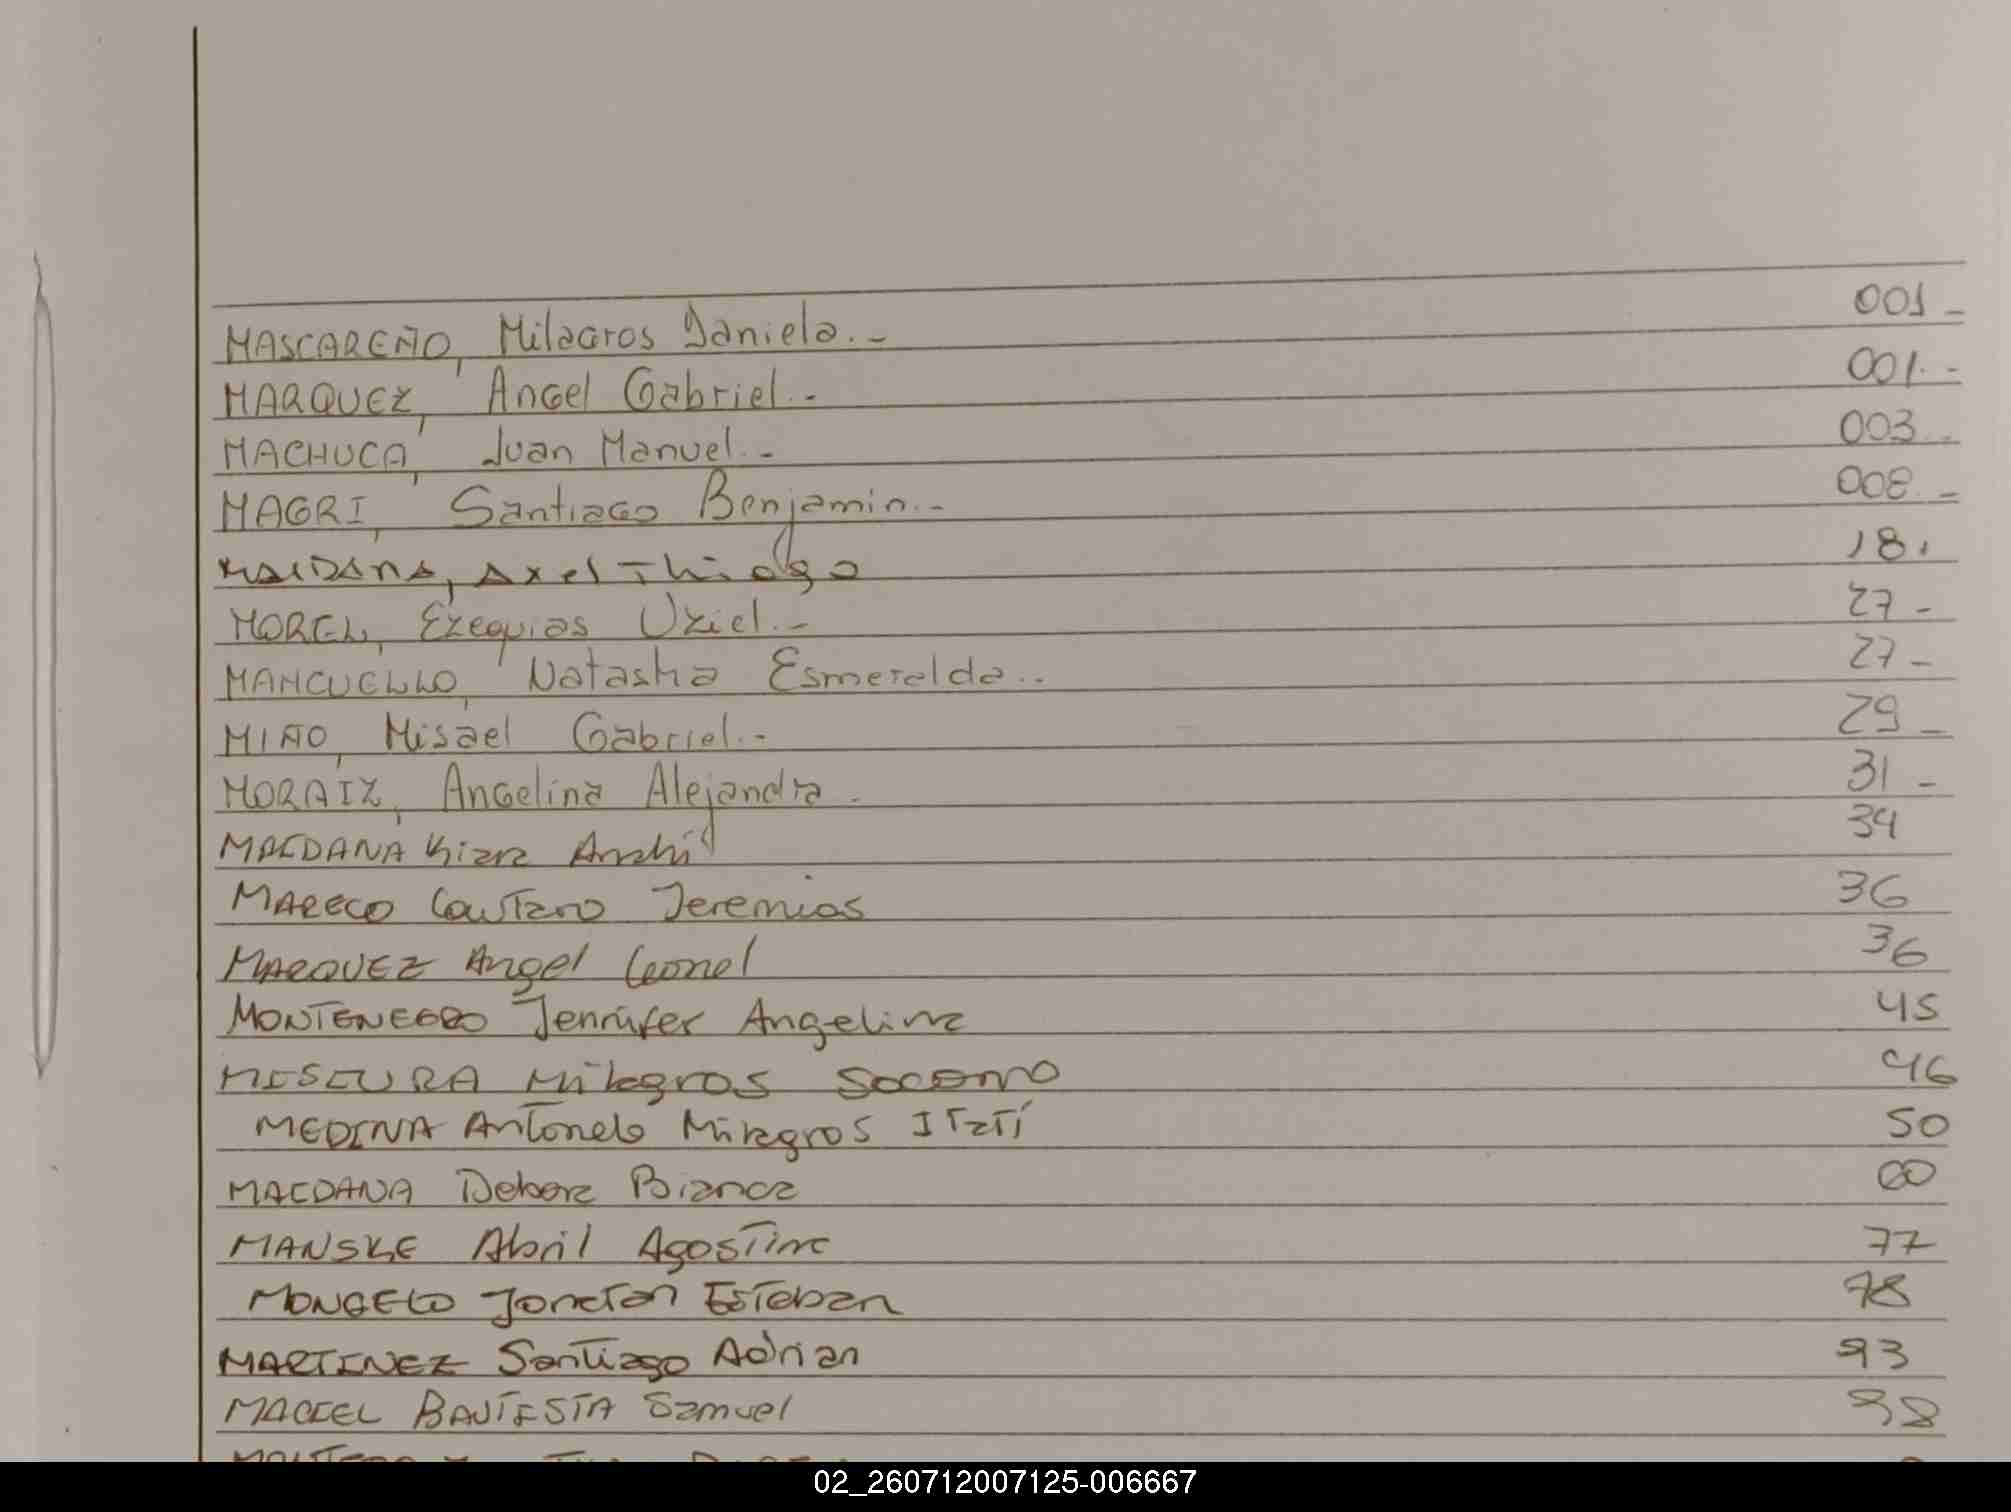 MASCAREÑO, Milagros Daniela.- 001-
MARQUEZ, Angel Gabriel.- 001.-
MACHUCA, Juan Manuel.- 003.-
MAGRI, Santiago Benjamin.- 008.-
MAIDANA, Axel Thiago 18.
MOREL, Ezequias Uziel.- 27-
MANCUELLO, Natasha Esmeralda.. 27-
MIÑO, Misael Gabriel.- 29-
MORAIZ, Angelina Alejandra. 31-
MAIDANA Kiara Anahí 34
MARECO Lautaro Jeremias 36
MARQUEZ Angel Leonel 36
MONTENEGRO Jennifer Angelina 45
MISIURA Milagros Socorro 46
MEDINA Antonela Milagros Itatí 50
MAIDANA Debora Bianca 60
MANSKE Abril Agostina 77
MONGELO Jonatan Esteban 78
MARTINEZ Santiago Adrian 93
MACIEL BAUTISTA Samuel 98
02_260712007125-006667